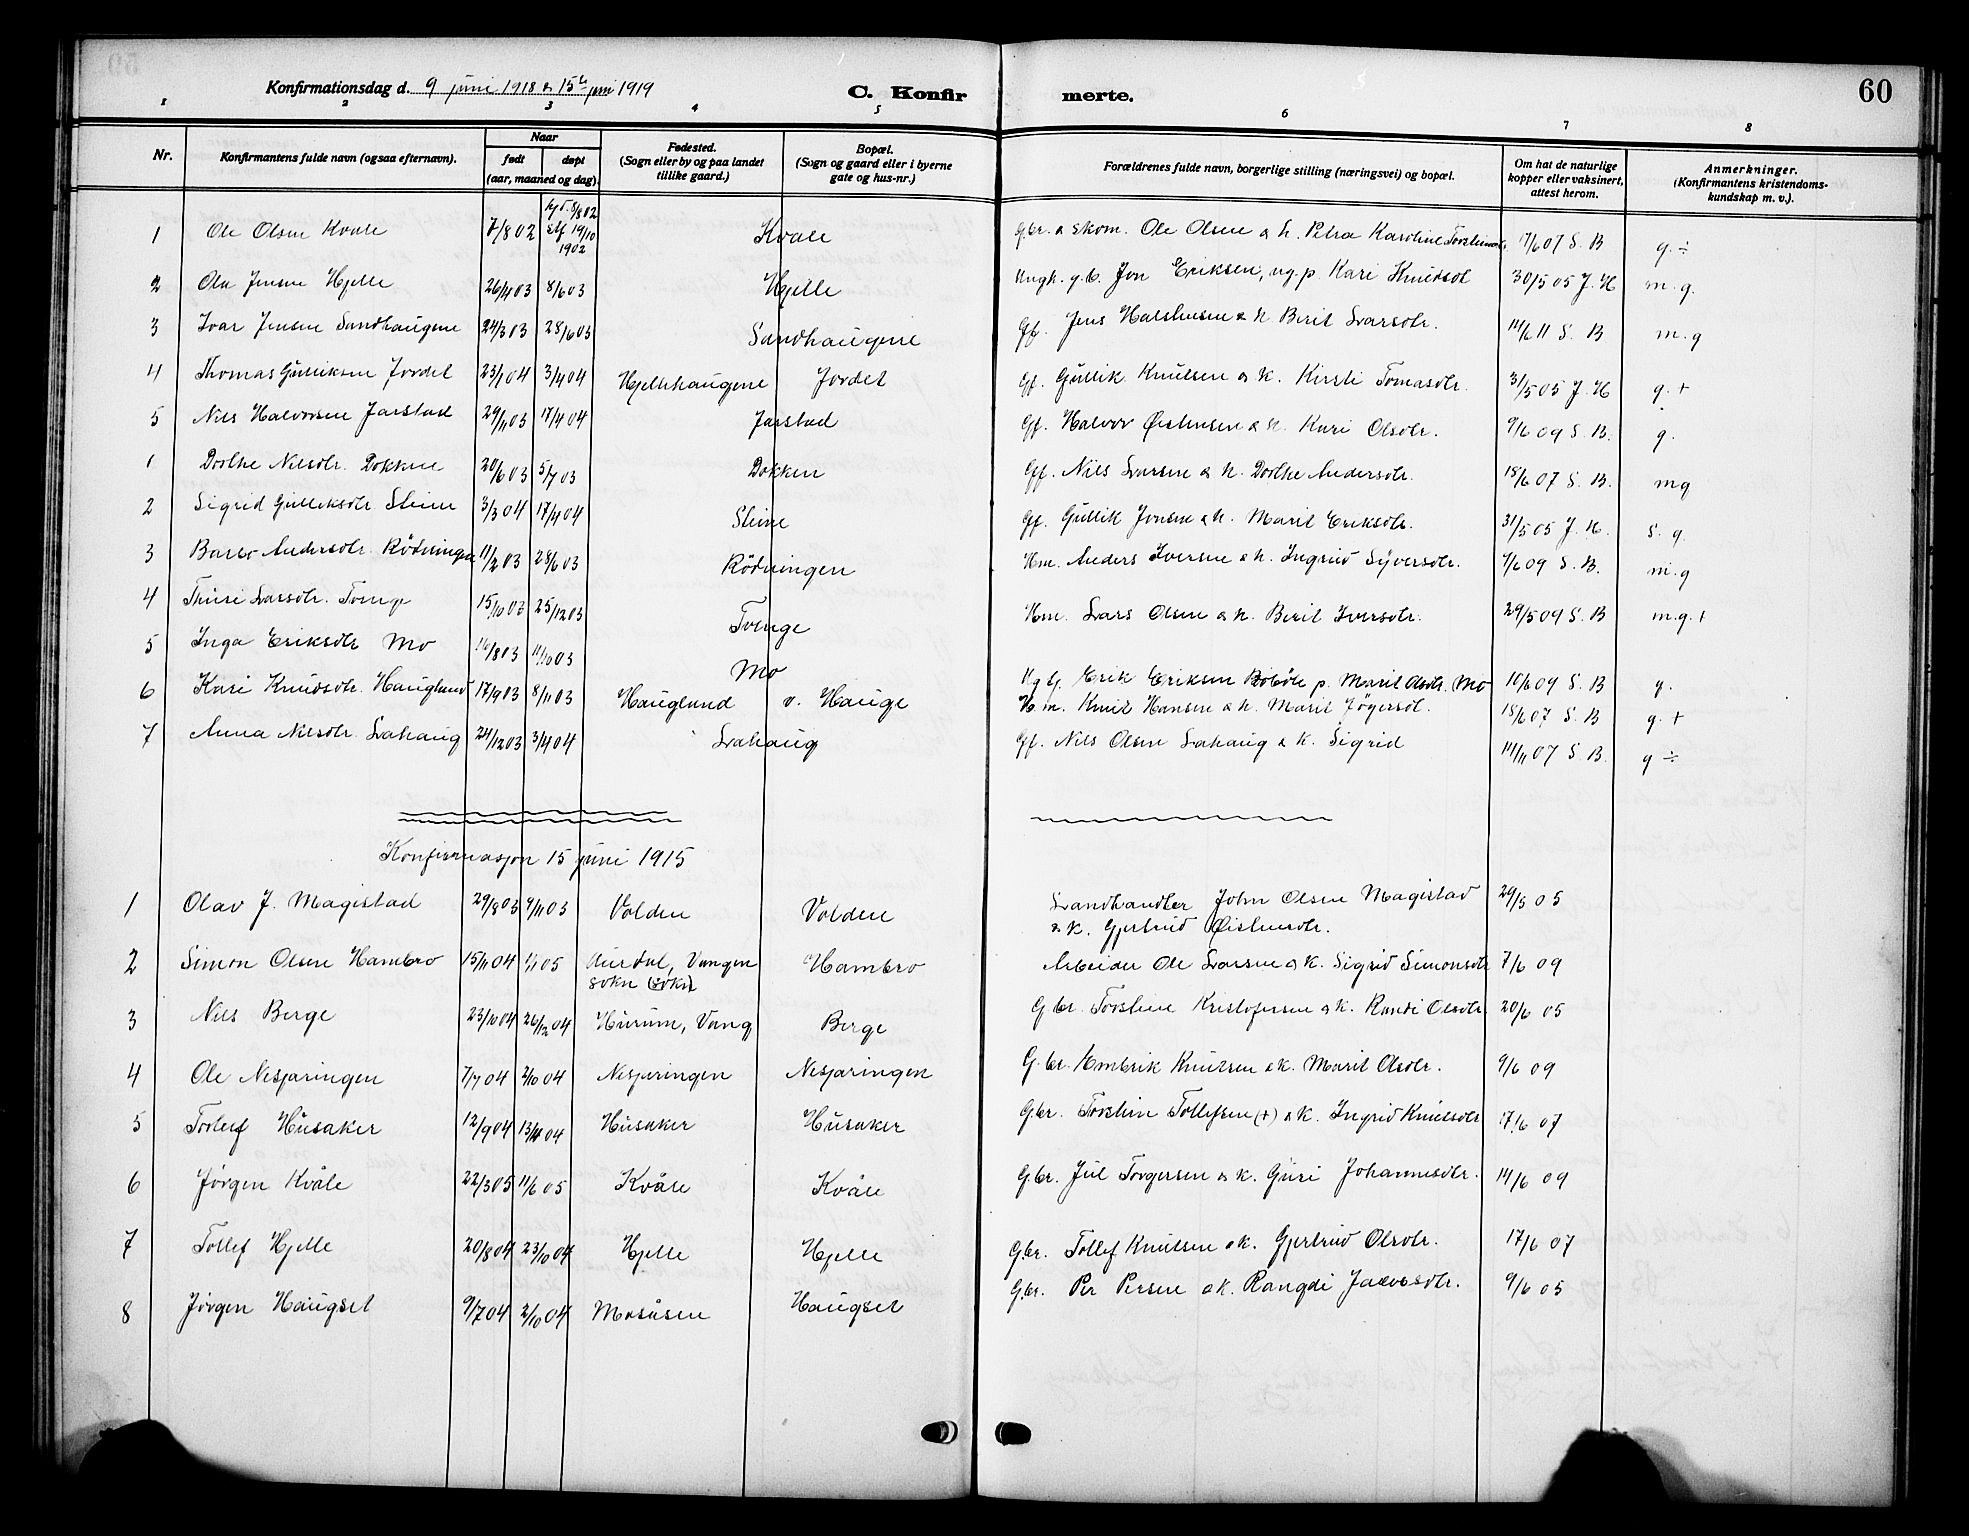 60
Konfirmationsdag d. 9 juni 1918 & 15de juni 1919
C. Konfirmerte.
1 2 3 4 5 6 7 8
Nr. Konfirmantens fulde navn (ogsaa efternavn). Naar født døpt (aar, maaned og dag). Fødested. (Sogn eller by og paa landet tillike gaard.) Bopæl. (Sogn og gaard eller i byerne gate og hus-nr.) Forældrenes fulde navn, borgerlige stilling (næringsvei) og bopæl. Om hat de naturlige kopper eller vaksinert, attest herom. Anmerkninger. (Konfirmantens kristendomskundskap m. v.).
1 Ole Olsen Kvale 7/8 02 hj d. 8/8 02 stf 19/10 1902 Kvale G.br. & skom. Ole Olsen & h. Petra Karoline Torsteinsdtr. 7/6 07 S. B g. ÷
2 Ola Jensen Hjelle 26/4 03 8/6 03 Hjelle Ungk. g.b. Jon Eriksen, ug. p. Kari Knudsdt 30/5 05 J. H m. g.
3 Ivar Jensen Sandhaugene 24/3 03 28/6 03 Sandhaugene Gf. Jens Halstensen & h. Berit Larsdtr. 14/6 11 S. B m. g
4 Thomas Gulliksen Jordet 23/1 04 3/4 04 Hjellehaugene Jordet Gf. Gullik Knutsen & k. Kirsti Tomasdtr. 31/5 05 J. H g. +
5 Nils Halvorsen Jarstad 29/11 03 17/4 04 Jarstad Gf. Halvor Øistensen & h. Kari Olsdtr. 9/6 09 S. B. g.
1 Dorthe Nilsdtr. Dokken 20/6 03 5/7 03 Dokken Gf. Nils Larsen & h. Dorthe Andersdtr. 18/6 07 S. B. mg
2 Sigrid Gulliksdtr Steine 3/3 04 17/4 04 Steine Gf. Gullik Jonsen & h. Marit Eriksdtr. 31/5 05 J. H. S. g.
3 Barbo Andersdtr. Rödningen 11/2 03 28/6 03 Rödningen Hm. Anders Iversen & h. Ingrid Syversdtr. 7/6 09 S. B. m. g
4 Thuri Larsdtr. Tvenge 15/10 03 25/12 03 Tvenge Hm. Lars Olsen & h. Berit Iversdtr. 29/5 09 S. B m. g. +
5 Inga Eriksdtr Mo 16/8 03 11/10 03 Mo Ug G. Erik Eriksen Böböle p. Marit Olsdtr. Mo 16/6 09 S. B g.
6 Kari Knudsdtr. Haugland 17/9 03 8/11 03 Haugland v. Hauge Hm. Knut Hansen & h. Marit Jögersdt. 18/6 07 S. B g. +
7 Anna Nilsdtr. Lahaug 24/12 03 3/4 04 Lahaug Gf. Nils Olsen Lahaug & k. Sigrid 14/11 07 S. B. g ÷
Konfirmasjon 15 juni 1915
1 Olav J. Magistad 29/8 03 9/11 03 Volden Volden Landhandler John Olsen Magistad
& k. Gjertrud Øistensdtr. 29/5 05
2 Simon Olsen Hambro 15/11 04 1/1 05 Aurdal, Vangen sokn (sokn) Hambro Arbeider Ole Larsen & k. Sigrid Simonsdtr 7/6 09
3 Nils Berge 23/10 04 26/12 04 Hurum, Vang Berge G br. Torstein Kristofersen & k. Randi Olsdtr. 20/6 05
4 Ole Nesjaringen 7/7 04 2/10 04 Nesjaringen Nesjaringen G. br. Embrik Knutsen & k. Marit Olsdtr. 9/6 09
5 Torleif Husaker 12/9 04 13/11 04 Husaker Husaker G.br. Torstein Tollefsen (+) & k. Ingrid Knutsdtr 17/6 07
6 Jörgen Kvåle 22/3 05 11/6 05 Kvåle Kvåle G.br. Jul Torgersen & k. Guri Johannesdtr. 14/6 09
7 Tollef Hjelle 20/8 04 23/10 04 Hjelle Hjelle G.br. Tollef Knutsen & k. Gjertrud Olsdtr. 17/6 07
8 Jörgen Haugset 9/7 04 2/10 04 Mosåsen Haugset G.br. Per Persen & k. Rangdi Jacobsdtr. 9/6 05